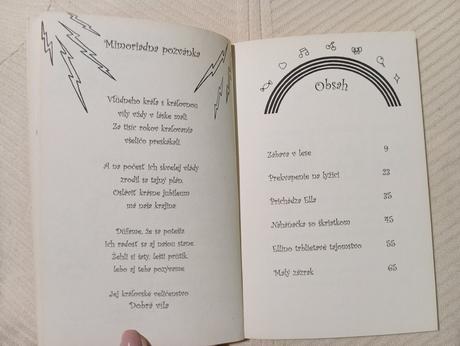 Mimoriadna pozvánka
Vľúdneho kráľa s kráľovnou
víly vždy v láske mali.
Za tisíc rokov kraľovania
všeličo preskákali.
A na počesť ich skvelej vlády
zrodil sa tajný plán.
Osláviť krásne jubileum
má naša krajina
Dúfame, že sa potešia
Ich radosť sa aj našou stane.
Žehli si šaty, lešti prútik,
lebo aj teba pozývame
Jej kráľovské veličenstvo
Dobrá víla
Obsah
Zábava v lese 9
Prekvapenie na lyžici 23
Prichádza Ella 35
Naháňačka so škriatkom 45
Ellino trblietavé tajomstvo 55
Malý zázrak 65